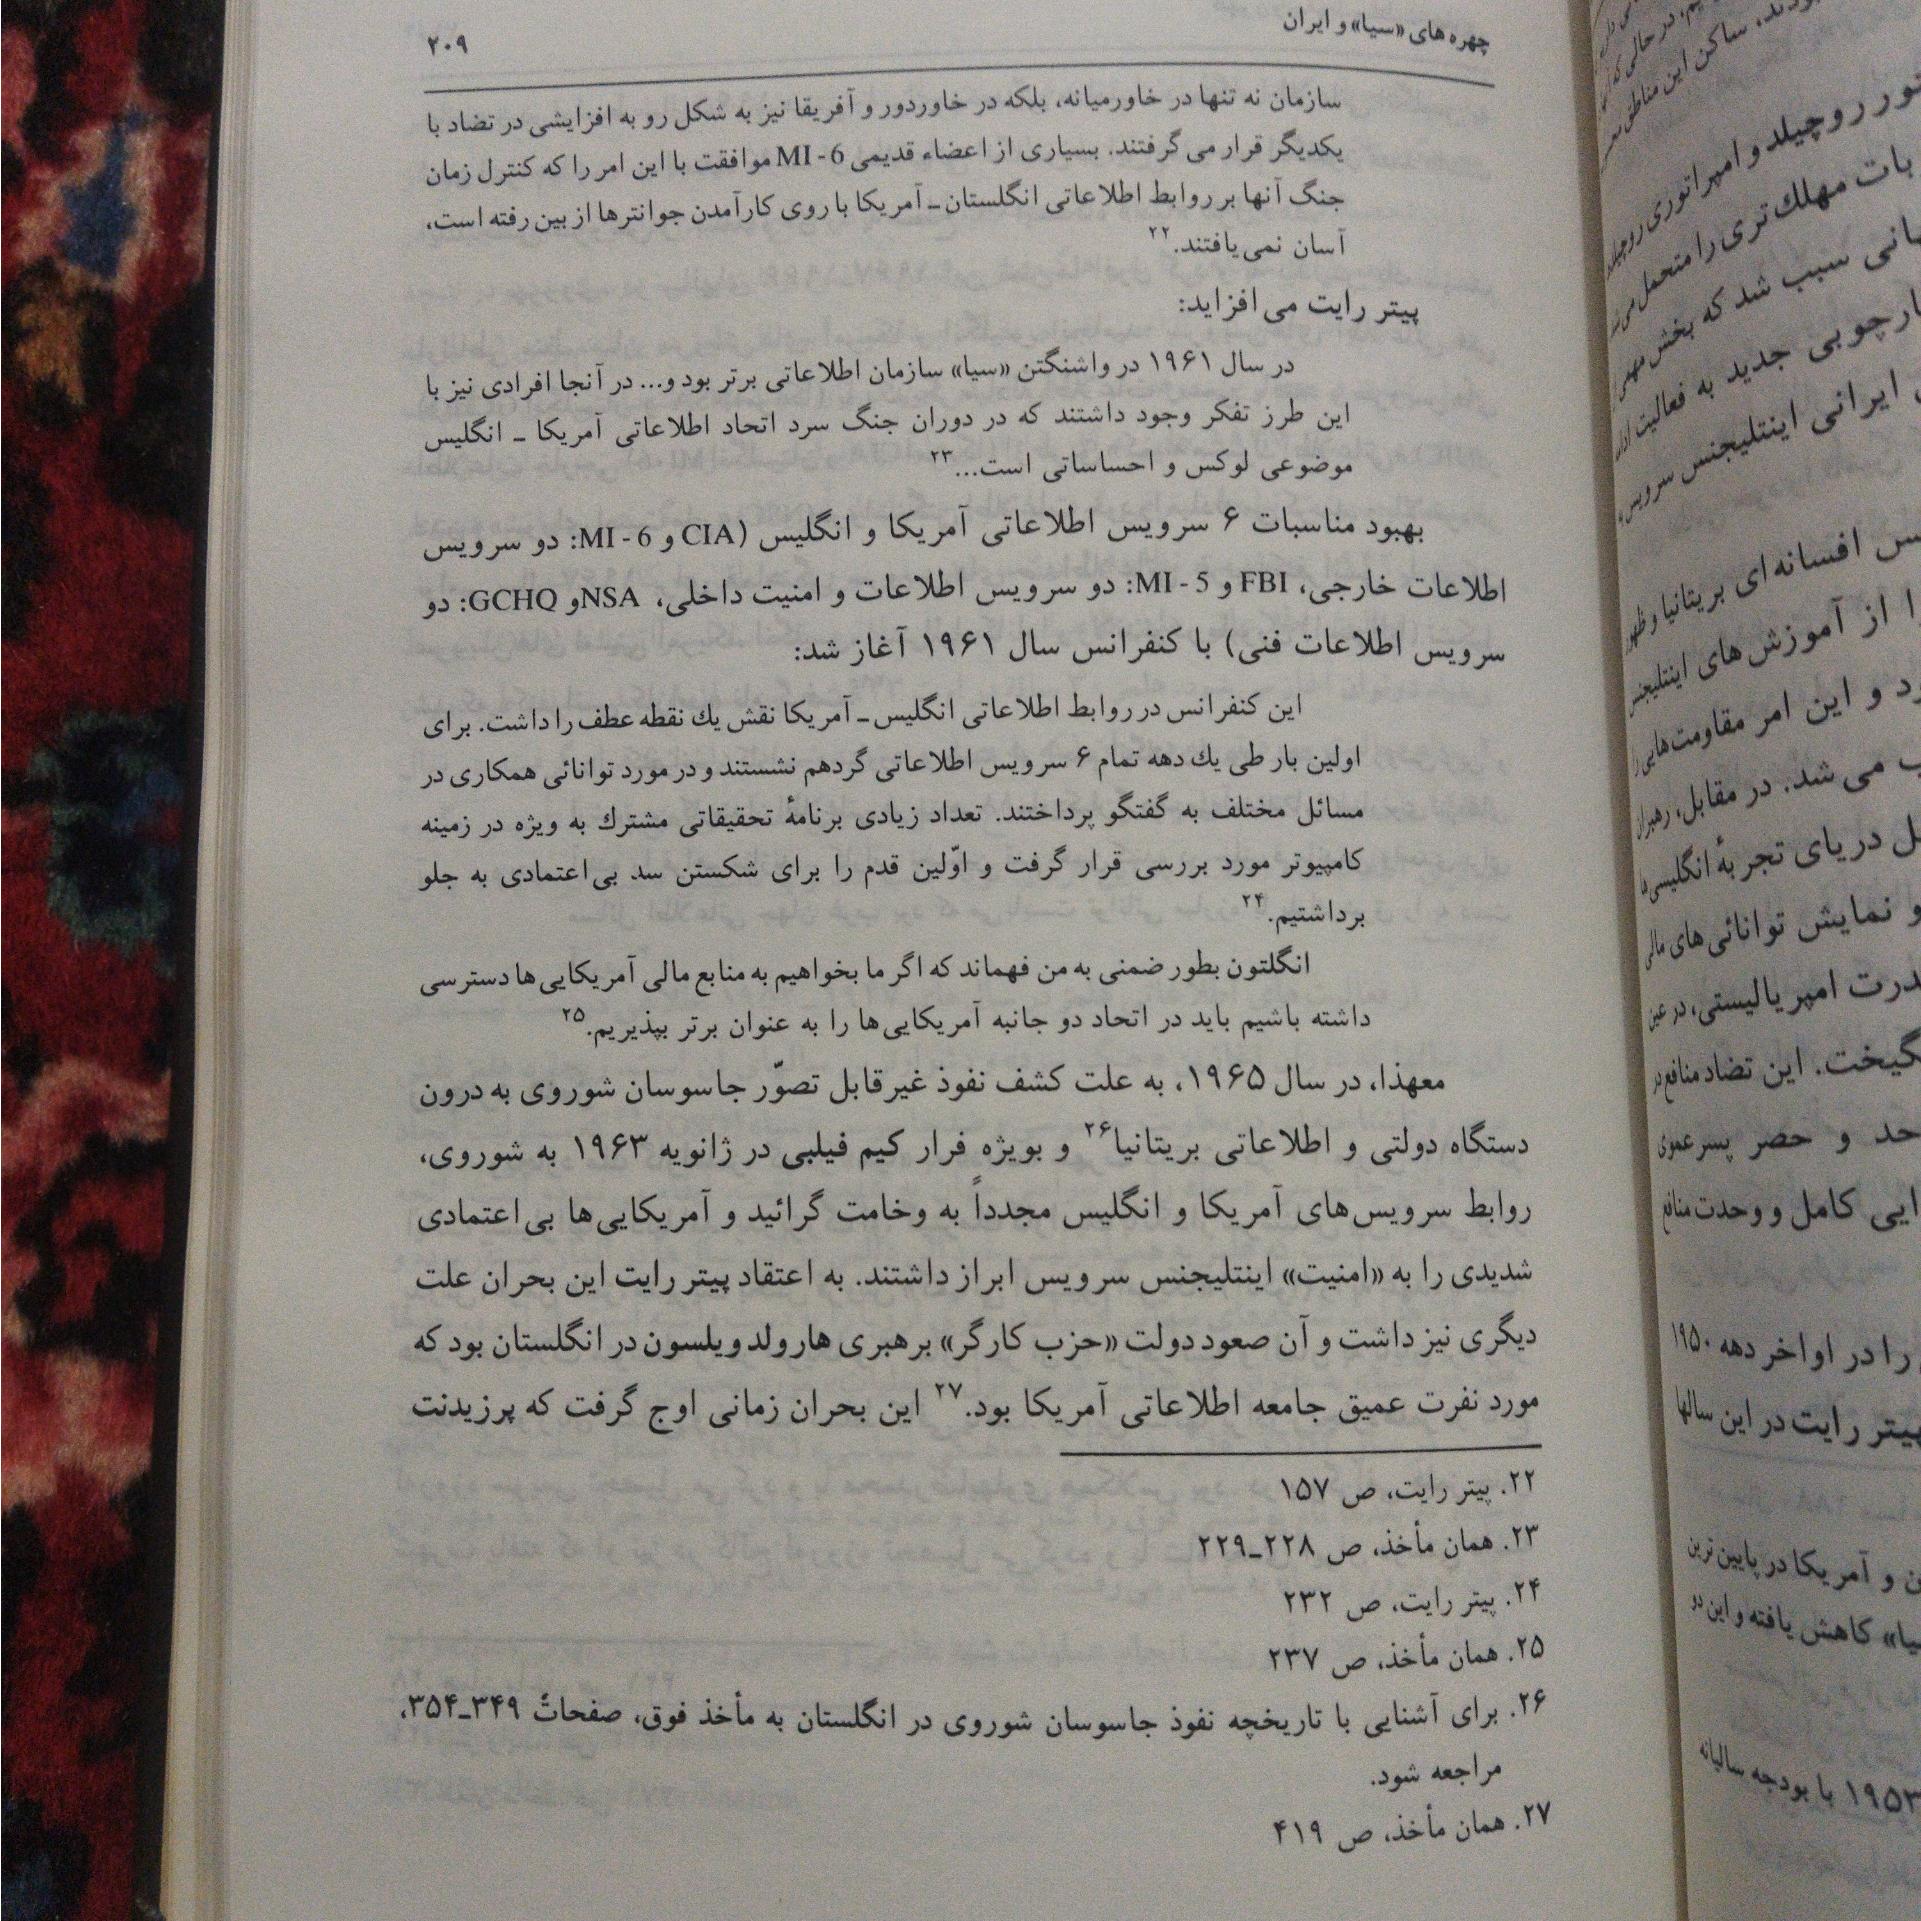 چهره‌های «سیا» و ایران
۲۰۹
سازمان نه تنها در خاورمیانه، بلکه در خاوردور و آفریقا نیز به شکل رو به افزایشی در تضاد با
یکدیگر قرار می‌گرفتند. بسیاری از اعضاء قدیمی MI - 6 موافقت با این امر را که کنترل زمان
جنگ آنها بر روابط اطلاعاتی انگلستان ـ آمریکا با روی کارآمدن جوانترها از بین رفته است،
آسان نمی‌یافتند.۲۲
پیتر رایت می‌افزاید:
در سال ۱۹۶۱ در واشنگتن «سیا» سازمان اطلاعاتی برتر بود و... در آنجا افرادی نیز با
این طرز تفکر وجود داشتند که در دوران جنگ سرد اتحاد اطلاعاتی آمریکا ـ انگلیس
موضوعی لوکس و احساساتی است...۲۳
بهبود مناسبات ۶ سرویس اطلاعاتی آمریکا و انگلیس (CIA و MI - 6: دو سرویس
اطلاعات خارجی، FBI و MI - 5: دو سرویس اطلاعات و امنیت داخلی، NSA و GCHQ: دو
سرویس اطلاعات فنی) با کنفرانس سال ۱۹۶۱ آغاز شد:
این کنفرانس در روابط اطلاعاتی انگلیس ـ آمریکا نقش یك نقطه عطف را داشت. برای
اولین بار طی یك دهه تمام ۶ سرویس اطلاعاتی گردهم نشستند و در مورد توانائی همکاری در
مسائل مختلف به گفتگو پرداختند. تعداد زیادی برنامهٔ تحقیقاتی مشترك به ویژه در زمینه
کامپیوتر مورد بررسی قرار گرفت و اوّلین قدم را برای شکستن سد بی‌اعتمادی به جلو
برداشتیم.۲۴
انگلتون بطور ضمنی به من فهماند که اگر ما بخواهیم به منابع مالی آمریکایی‌ها دسترسی
داشته باشیم باید در اتحاد دو جانبه آمریکایی‌ها را به عنوان برتر بپذیریم.۲۵
معهذا، در سال ۱۹۶۵، به علت کشف نفوذ غیرقابل تصوّر جاسوسان شوروی به درون
دستگاه دولتی و اطلاعاتی بریتانیا۲۶ و بویژه فرار کیم فیلبی در ژانویه ۱۹۶۳ به شوروی،
روابط سرویس‌های آمریکا و انگلیس مجدداً به وخامت گرائید و آمریکایی‌ها بی‌اعتمادی
شدیدی را به «امنیت» اینتلیجنس سرویس ابراز داشتند. به اعتقاد پیتر رایت این بحران علت
دیگری نیز داشت و آن صعود دولت «حزب کارگر» برهبری هارولد ویلسون در انگلستان بود که
مورد نفرت عمیق جامعه اطلاعاتی آمریکا بود.۲۷ این بحران زمانی اوج گرفت که پرزیدنت
۲۲. پیتر رایت، ص ۱۵۷
۲۳. همان مأخذ، ص ۲۲۸ـ۲۲۹
۲۴. پیتر رایت، ص ۲۳۲
۲۵. همان مأخذ، ص ۲۳۷
۲۶. برای آشنایی با تاریخچه نفوذ جاسوسان شوروی در انگلستان به مأخذ فوق، صفحات ۳۴۹ـ۳۵۴،
مراجعه شود.
۲۷. همان مأخذ، ص ۴۱۹
ساکن این مناطق
روچیلد و امپراتوری روچیلد
مهلك‌تری را متحمل می‌شد
سبب شد که بخش مهمی
جدید به فعالیت
ایرانی اینتلیجنس سرویس
افسانه‌ای بریتانیا و ظهور
از آموزش‌های اینتلیجنس
و این امر مقاومت‌هایی را
می‌شد. در مقابل، رهبران
دریای تجربهٔ انگلیسی‌ها
و نمایش توانائی‌های مالی
امپریالیستی، در عین
این تضاد منافع در
و حصر پسرعموی
کامل و وحدت منافع
را در اواخر دهه ۱۹۵۰
پیتر رایت در این سالها
و آمریکا در پایین‌ترین
کاهش یافته و این دو
۱۹۵۳ با بودجه سالیانه